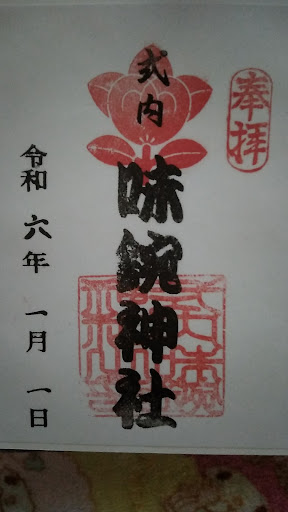 奉拝
式内
味鋺神社
令和六年一月一日